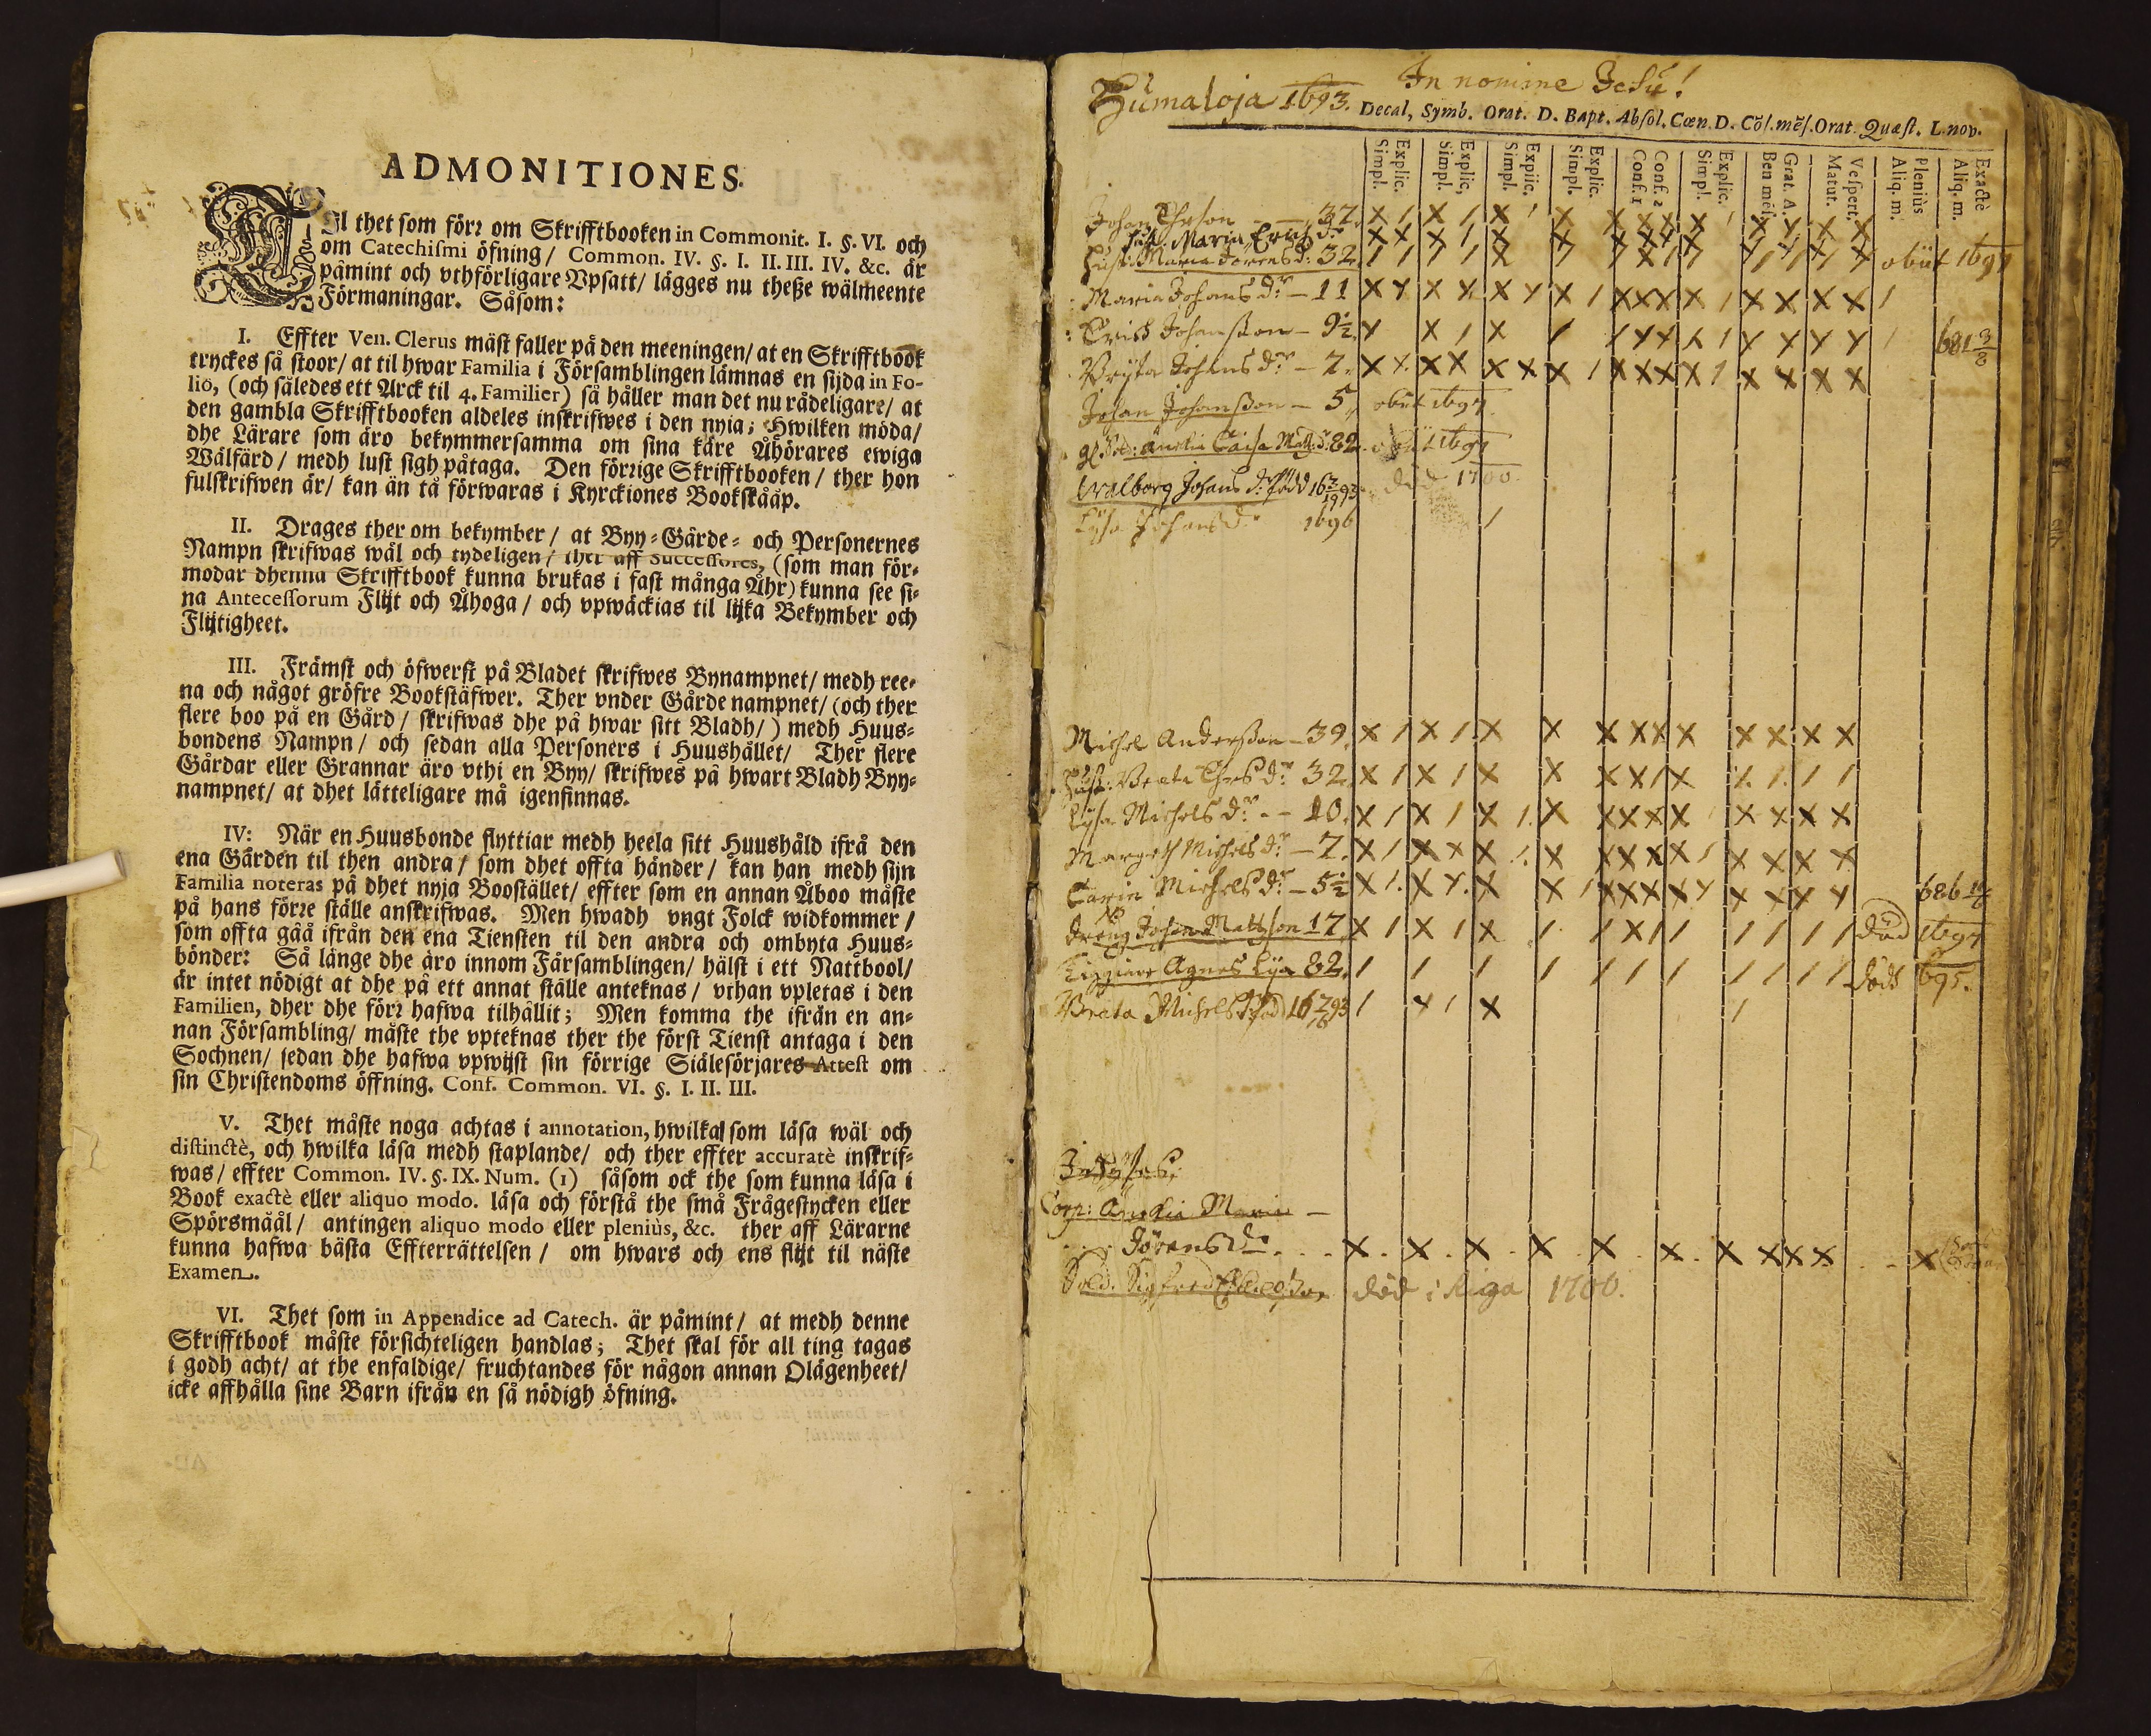 ADMONITIONES.
TIl thet som förr om Skrifftbooken in Commonit. I. §. VI. och
om Catechismi öfning / Common. IV. §. I. II. III. IV. &c. är
påmint och vthförligare Vpsatt / lägges nu theße wälmeente
Förmaningar. Såsom:
I. Effter Ven. Clerus mäst faller på den meeningen / at en Skrifftbook
tryckes så stoor / at til hwar Familia i Församblingen lämnas en sijda in Fo-
lio, (och således ett Arck til 4. Familier) så håller man det nu rådeligare / at
den gambla Skrifftbooken aldeles inskrifwes i den nyia; Hwilken möda /
dhe Lärare som äro bekymmersamma om sina käre Åhörares ewiga
Wälfärd / medh lust sigh påtaga. Den förrige Skrifftbooken / ther hon
fulskrifwen är / kan än tå förwaras i Kyrckiones Bookskååp.
II. Drages ther om bekymber / at Byy-Gårde- och Personernes
Nampn skrifwas wäl och tydeligen / ther aff Successores, (som man för-
modar dhenna Skrifftbook kunna brukas i fast många Åhr) kunna see si-
na Antecessorum Flijt och Åhoga / och vpwäckias til lijka Bekymber och
Flijtigheet.
III. Främst och öfwerst på Bladet skrifwes Bynampnet / medh ree-
na och något gröfre Bookstäfwer. Ther vnder Gårde nampnet / (och ther
flere boo på en Gård / skrifwas dhe på hwar sitt Bladh / ) medh Huus-
bondens Nampn / och sedan alla Personers i Huushållet / Ther flere
Gårdar eller Grannar äro vthi en Byy / skrifwes på hwart Bladh Byy-
nampnet / at dhet lätteligare må igenfinnas.
IV: När en Huusbonde flyttiar medh heela sitt Huushåld ifrå den
ena Gården til then andra / som dhet offta händer / kan han medh sijn
Familia noteras på dhet nyja Boostället / effter som en annan Åboo måste
på hans förre ställe anskrifwas. Men hwadh vngt Folck widkommer /
som offta gåå ifrån den ena Tiensten til den andra och ombyta Huus-
bönder: Så länge dhe äro innom Församblingen / hälst i ett Nattbool /
är intet nödigt at dhe på ett annat ställe anteknas / vthan vpletas i den
Familien, dher dhe förr hafwa tilhållit; Men komma the ifrån en an-
nan Försambling / måste the vpteknas ther the först Tienst antaga i den
Sochnen / sedan dhe hafwa vpwijst sin förrige Siälesörjares Attest om
sin Christendoms öffning. Conf. Common. VI. §. I. II. III.
V. Thet måste noga achtas i annotation, hwilka som läsa wäl och
distinctè, och hwilka läsa medh staplande / och ther effter accuratè inskrif-
was / effter Common. IV. §. IX. Num. (1) såsom ock the som kunna läsa i
Book exactè eller aliquo modo. läsa och förstå the små Frågestycken eller
Spörsmåål / antingen aliquo modo eller pleniùs, &c. ther aff Lärarne
kunna hafwa bästa Effterrättelsen / om hwars och ens flijt til näste
Examen.
VI. Thet som in Appendice ad Catech. är påmint / at medh denne
Skrifftbook måste försichteligen handlas; Thet skal för all ting tagas
i godh acht / at the enfaldige / fruchtandes för någon annan Olägenheet /
icke affhålla sine Barn ifrån en så nödigh öfning.
In nomine Jesu!
Humaloja 1693.
Decal, Symb. Orat. D. Bapt. Absol. Cœn. D. Cõs. mẽs. Orat. Quæst. L. nov.
Simpl. Explic. Simpl. Explic, Simpl. Explic, Simpl. Explic. Conf. 1 Conf. 2 Simpl. Explic. Ben mẽs. Grat. A. Matut. Vespert. Aliq. m. Pleniùs Aliq. m. Exactè
Johan 37. X / X / X / X X X X X / X X X X
Maria Erichsdr
Hust: Maria Jörensdr 32. obiit 1697
Maria Johansdr - 11 X X X X X X X / X X X X / X X X X /
Erich Johansson - 9½ X X / X / / X X X / X X X X / 681 3/8
Bryta Johansdr - 7. X X X X X X X / X X X X / X X X X
Johan Johansson - 5. obiit 1697.
82. obiit 1697
Walborg Johansdr född 16 93 död 1700.
Lysa Johansdr 1696 /
Michel Andersson - 39. X / X / X X X X X X X X X X
Hust: Beata 32. X / X / X X X X / X X / / /
Lysa Michelsdr - 10. X / X / X / X X X X X X X X X
Margeth Michelsdr - 7. X / X X X / X X X X X / X X X X
Carin Michelsdr - 5½ X / X X X X / X X X X X X X X X 686
dreng Johan Mattsson 17 X / X / X / / X / / / / / / död 1697
Agnes 82. / / / / / / / / / / / död 695.
Beata Michelsdr född 16 93 / X / X /
Maria
Jörensdr X X X X X X X X X X X
Sold. Sigfred död i Riga 1700.